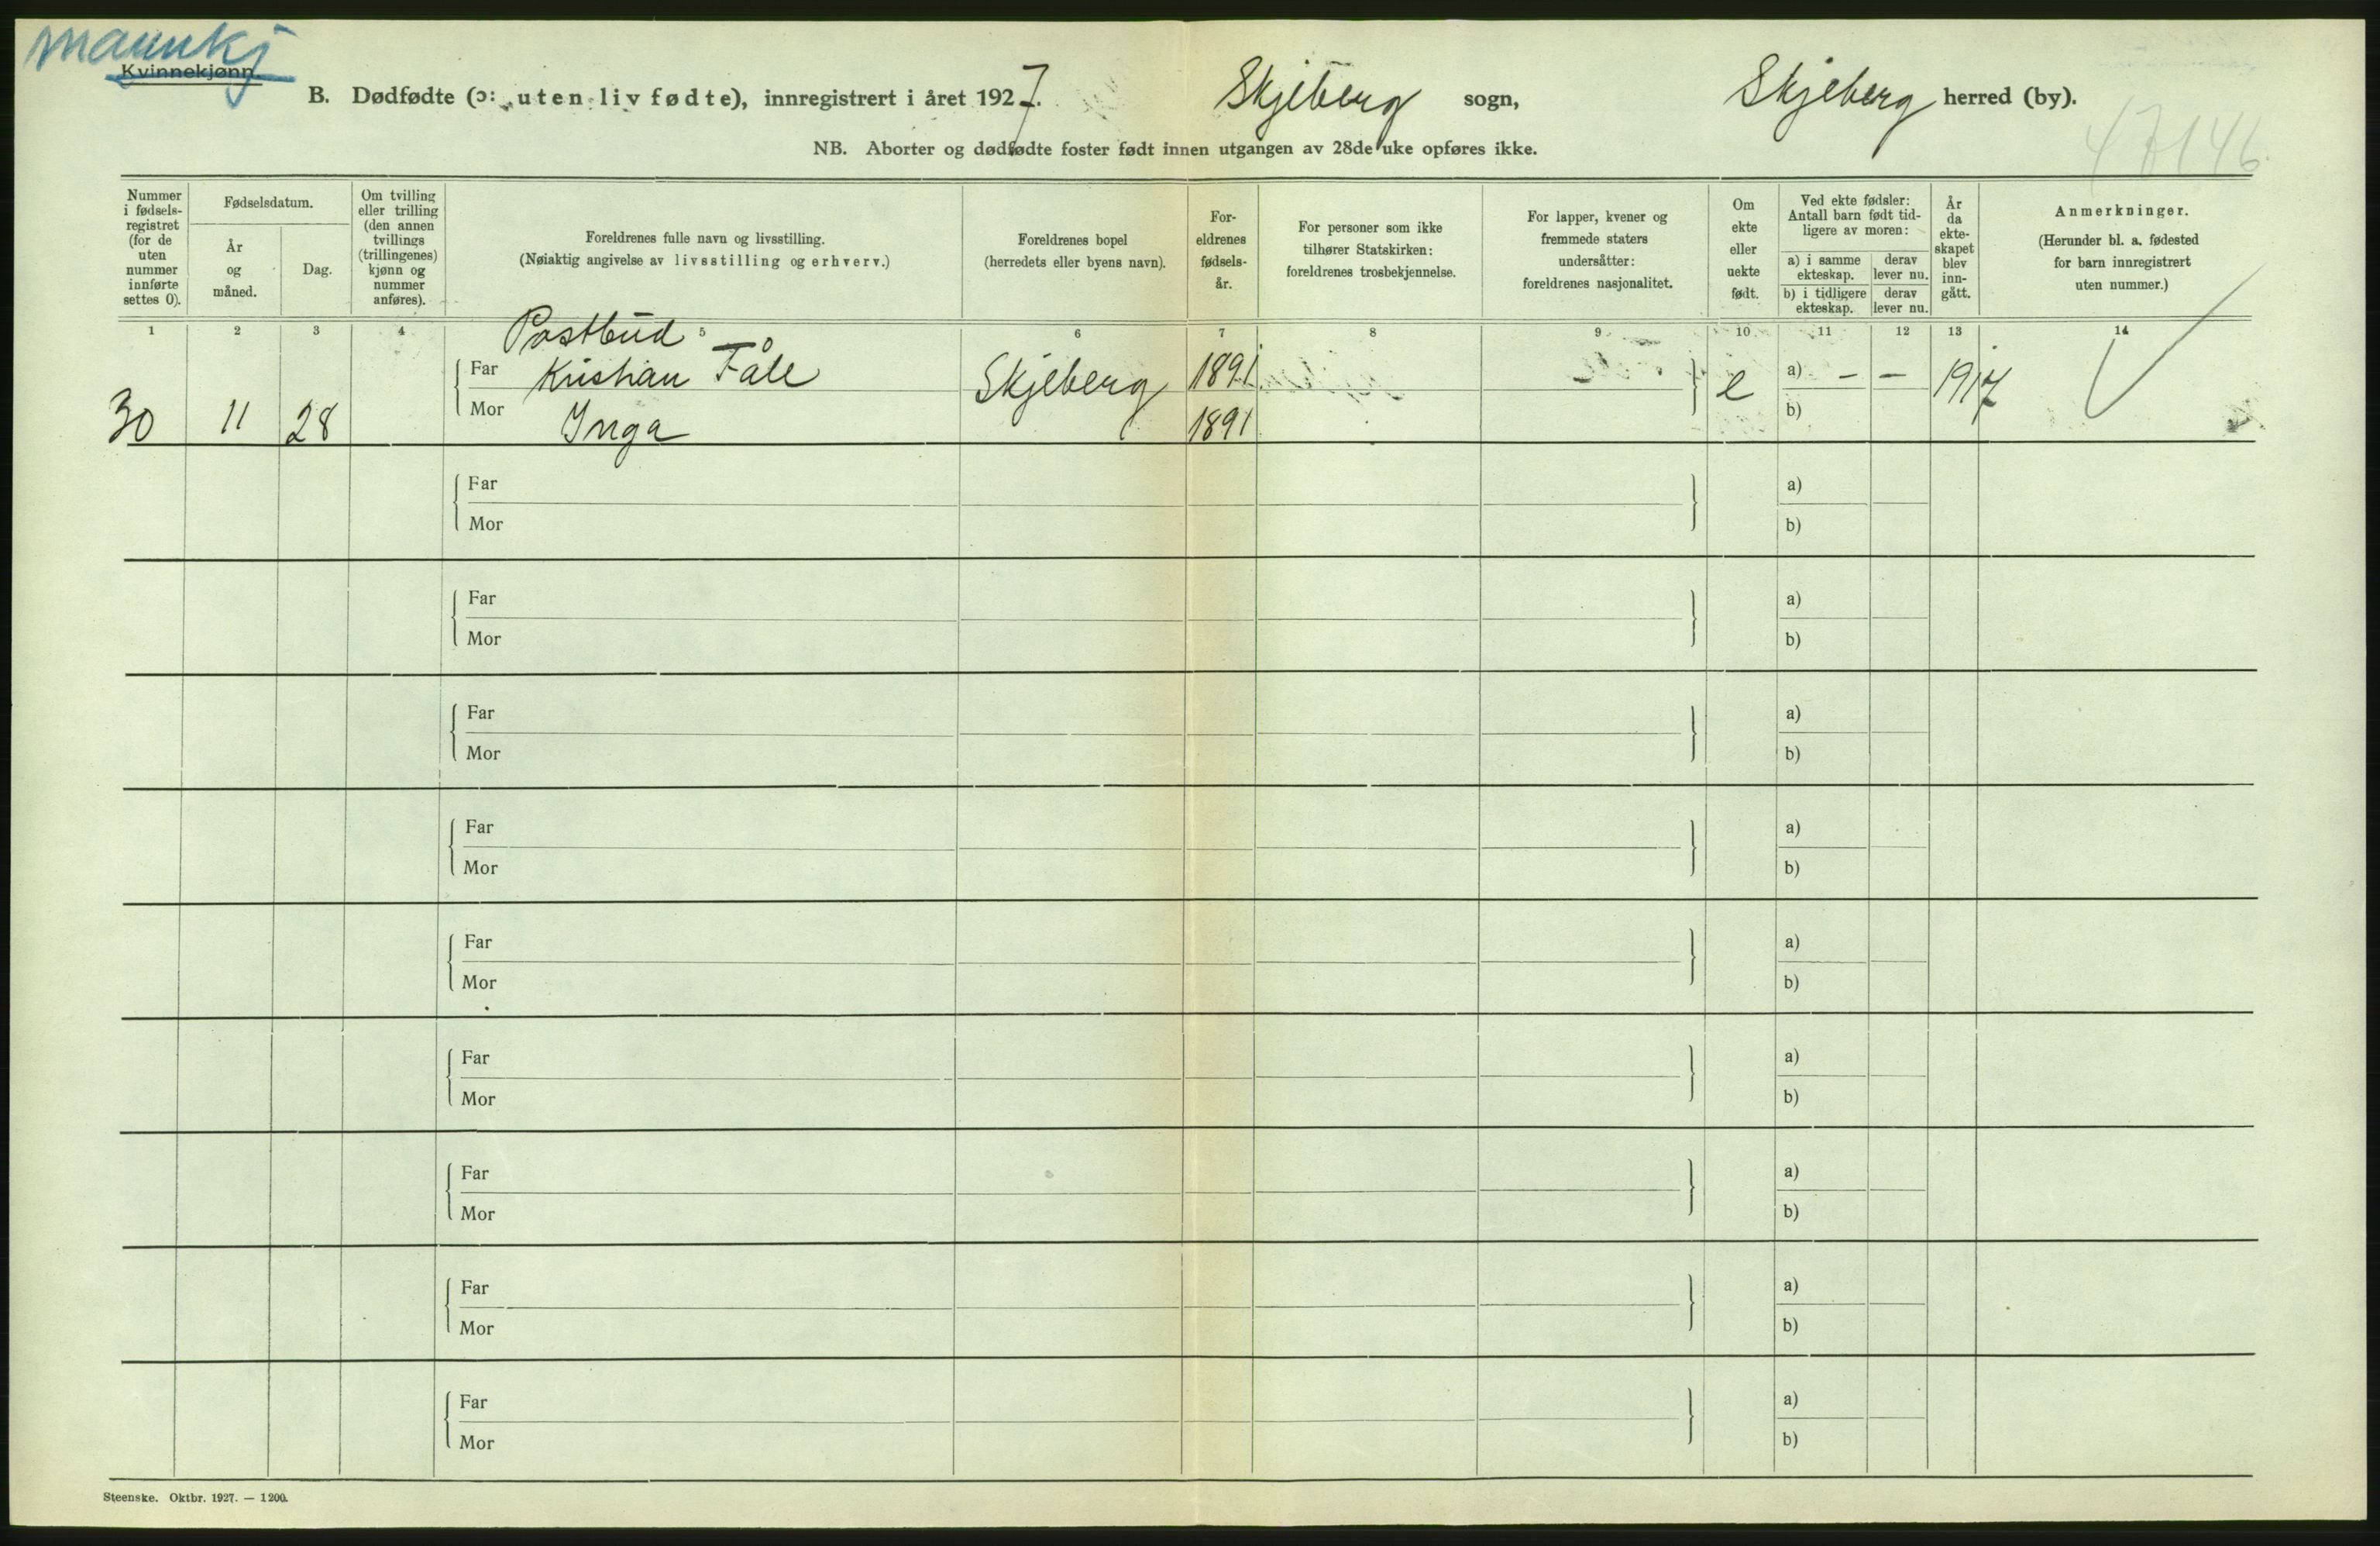 Mannkj
Kvinnekjønn.
B. Dødfødte (ɔ: uten liv fødte), innregistrert i året 1927. Skjeberg sogn, Skjeberg herred (by).
NB. Aborter og dødfødte foster født innen utgangen av 28de uke opføres ikke.
47146
Nummer i fødsels-registret (for de uten nummer innførte settes 0).
Fødselsdatum.
År og måned.
Dag.
Om tvilling eller trilling (den annen tvillings (trillingenes) kjønn og nummer anføres).
Foreldrenes fulle navn og livsstilling.
(Nøiaktig angivelse av livsstilling og erhverv.)
Foreldrenes bopel
(herredets eller byens navn).
For-eldrenes fødsels-år.
For personer som ikke tilhører Statskirken: foreldrenes trosbekjennelse.
For lapper, kvener og fremmede staters undersåtter: foreldrenes nasjonalitet.
Om ekte eller uekte født.
Ved ekte fødsler: Antall barn født tid-ligere av moren:
a) i samme ekteskap. derav lever nu.
b) i tidligere ekteskap. derav lever nu.
År da ekte-skapet blev inn-gått.
Anmerkninger.
(Herunder bl. a. fødested for barn innregistrert uten nummer.)
1 2 3 4 5 6 7 8 9 10 11 12 13 14
Postbud
Far Kristian Tåle Skjeberg 1891 e a) – – 1917
30 11 28 Mor Inga 1891 b)
Far a)
Mor b)
Far a)
Mor b)
Far a)
Mor b)
Far a)
Mor b)
Far a)
Mor b)
Far a)
Mor b)
Far a)
Mor b)
Far a)
Mor b)
Far a)
Mor b)
Steenske. Oktbr. 1927. — 1200.